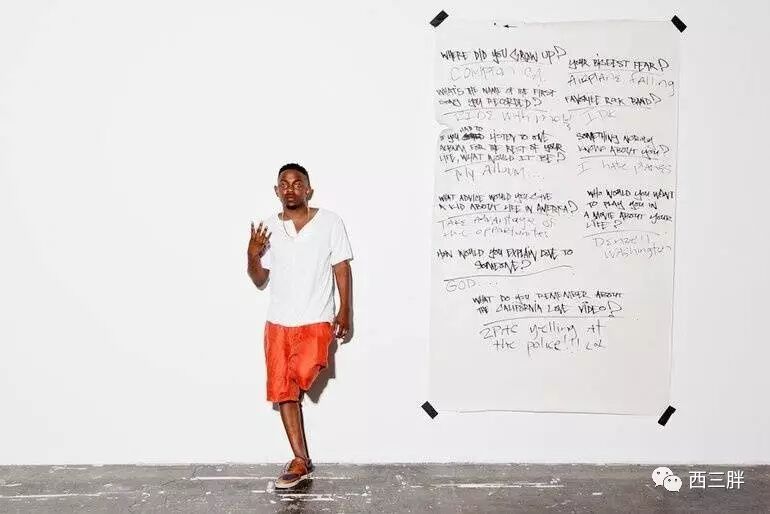 WHERE DID YOU GROW UP?
COMPTON CA
WHAT'S THE NAME OF THE FIRST
SONG YOU RECORDED?
RIDE With me
IF YOU HAD TO LISTEN TO ONE
ALBUM FOR THE REST OF YOUR
LIFE, WHAT WOULD IT BE?
My ALBUM...
WHAT ADVICE WOULD YOU GIVE
A KID ABOUT LIFE IN AMERICA?
TAKE Advantage of
the opportunites
HOW WOULD YOU EXPLAIN LOVE TO
SOMEONE?
GOD....
YOUR BIGGEST FEAR?
AIRPLANE FAlling
FAVORITE ROCK BAND?
IDK
SOMETHING NOBODY
KNOWS ABOUT YOU?
I hate planes
WHO WOULD YOU WANT
TO PLAY YOU IN
A MOVIE ABOUT YOUR
LIFE?
Denzell
Washington
WHAT DO YOU REMEMBER ABOUT
THE CALIFORNIA LOVE VIDEO?
2PAC yelling at
the police!!! LoL
西三胖